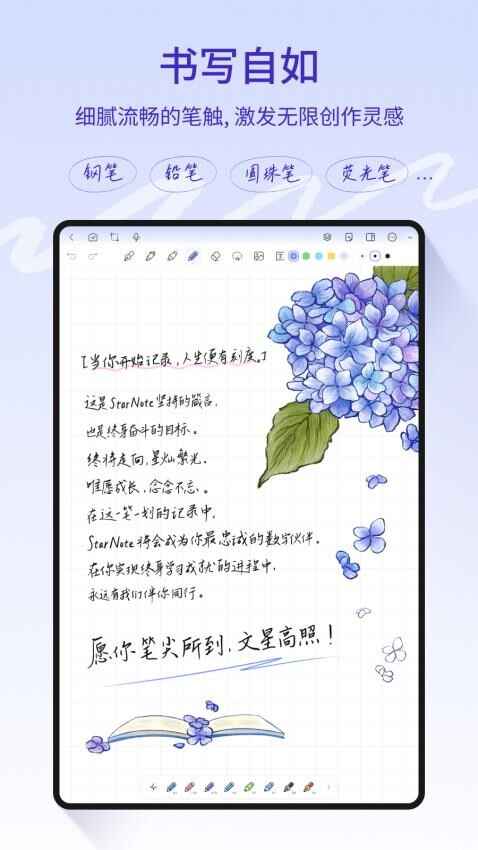 书写自如
细腻流畅的笔触, 激发无限创作灵感
钢笔 铅笔 圆珠笔 荧光笔 ...
「当你开始记录，人生便有刻度。」
这是StarNote坚持的箴言，
也是终身奋斗的目标。
终将走向，星灿繁光。
唯愿成长，念念不忘。
在这一笔一划的记录中，
StarNote将会成为你最忠诚的数字伙伴。
在你实现终身学习成长的进程中，
永远有我们伴你同行。
愿你笔尖所到，文星高照！